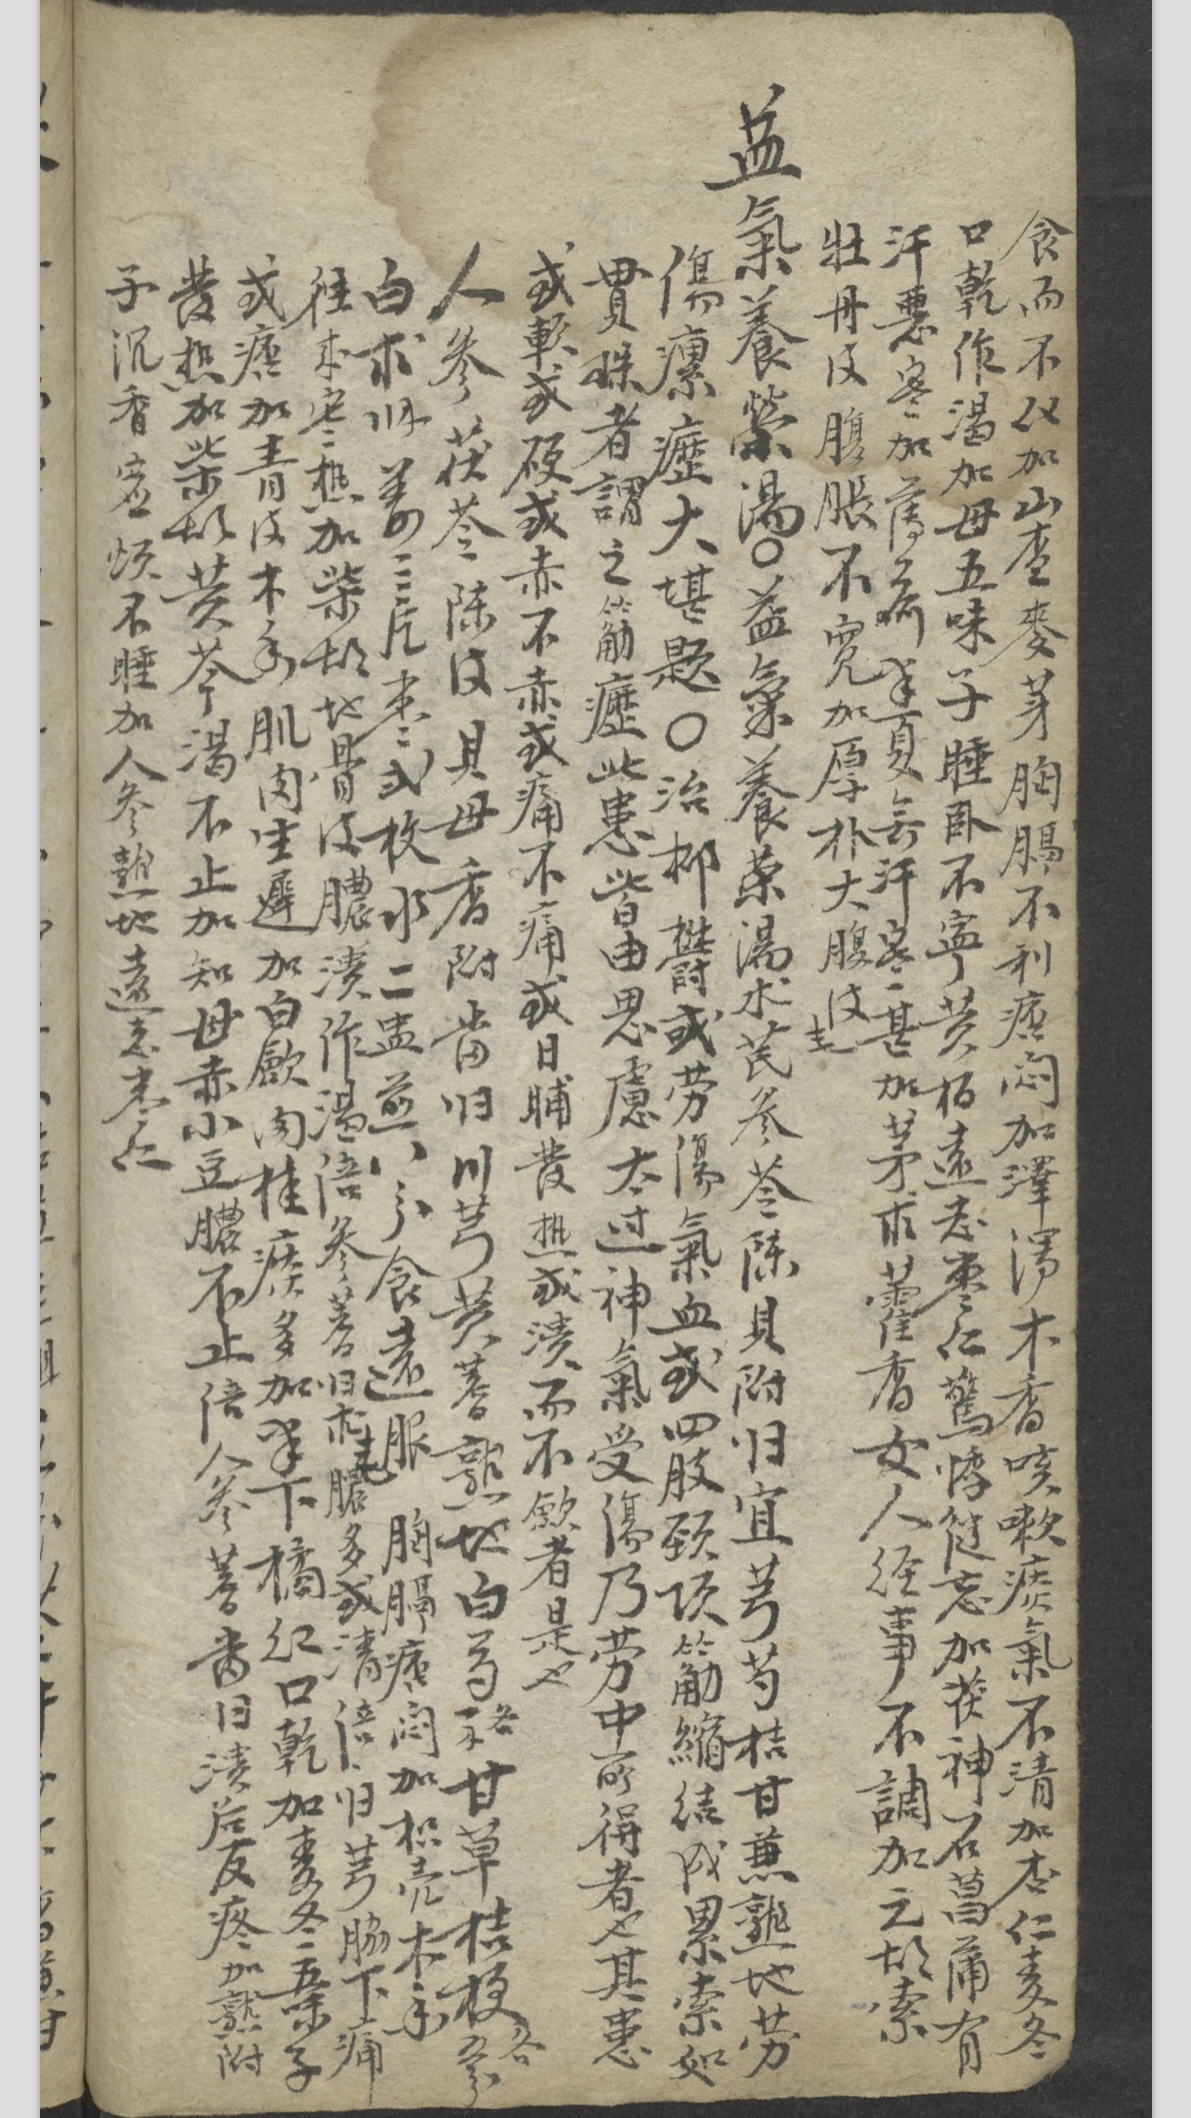 食而不化加山查麥芽胸膈不利痞悶加澤瀉木香咳嗽痰氣不清加杏仁麦冬
口乾作渴加母五味子睡卧不寧黄柏遠志枣仁驚悸健忘加茯神石菖蒲有
汗悪寒加薄荷半夏無汗寒甚加茅朮藿香女人经事不調加元胡索
牡丹皮腹脹不寛加厚朴大腹皮
益氣養榮湯〇益氣養荣湯术芪参苓陳貝附归宜芎芍桔甘兼熟地劳
傷瘰癧大堪题〇治抑鬱或劳傷氣血或四肢頸项筋縮結成累索如
貫珠者謂之筋癧此患皆由思慮太过神氣受傷乃劳中所得者也其患
或軟或硬或赤不赤或痛不痛或日晡發热或潰而不歛者是也
人参茯苓陳皮貝母香附當归川芎黄蓍熟地白芍各 甘草桔梗各
白朮 姜三片枣式枚水二盅煎八分食遠服 胸膈痞悶加枳壳木香
往来寒热加柴胡地骨皮膿潰作渴倍参蓍归朮膿多或清倍归芎脇下痛
或痞加青皮木香肌肉生遲加白歛肉桂痰多加半下橘红口乾加麦冬五味子
發热加柴胡黄芩渴不止加知母赤小豆膿不止倍人参蓍當归潰后反疼加熟附
子沉香虚烦不睡加人参熟地遠志枣仁